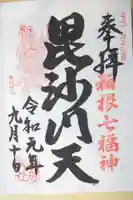 奉拝
箱根七福神
毘沙门天
令和元年
九月十日